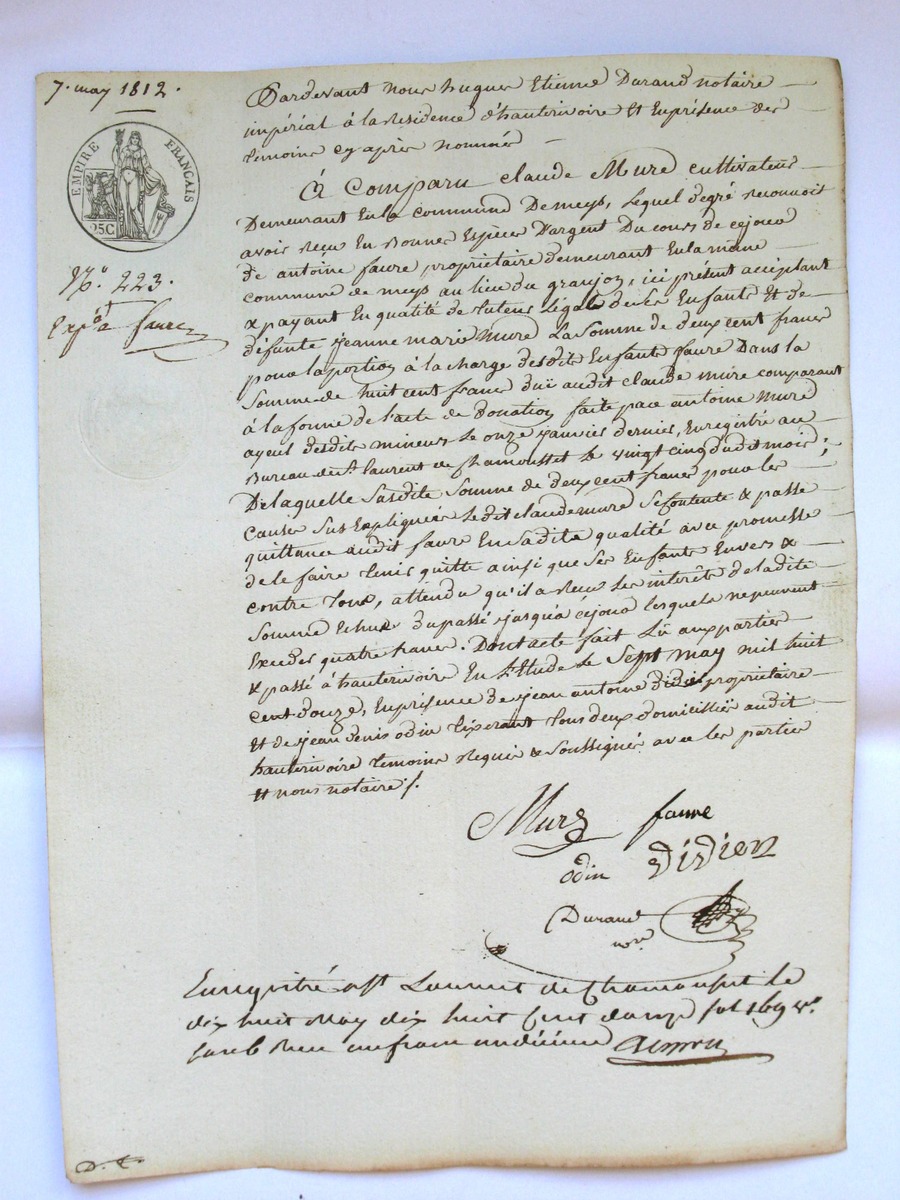 7. may 1812.
EMPIRE FRANÇAIS
25C
N.º 223.
Exp.on a faure
Pardevant nous hugues Etienne Durand notaire
impérial à la Résidence d'hauterivoire Et En présence des
témoins cy après nommés
A Comparu claude Mure cultivateur
Demeurant En la commune De meys, Lequel de gré reconnoit
avoir reçu En Bonnes Espèces D'argent Du cours de ce jour
de antoine faure propriétaire demeurant En la même
commune de meys au lieu du granjon, ici présent acceptant
& payant En qualité de tuteur Légale de ses Enfants Et de
défunte jeanne marie Mure La Somme de deux cent francs
pour la portion à la charge desdits Enfants faure Dans la
Somme de huit cent francs dûë audit claude mure comparant
à la forme de l'acte de Donation faite par antoine Mure
ayeul desdits mineurs le onze janvier dernier, Enregistré au
Bureau de St. Laurent de Chamousset le vingt cinq dudit mois;
De laquelle Susdite Somme de deux cent francs pour les
causes Sus Expliquées Ledit claude mure Se Contente & passe
quittance audit faure En Sadite qualité avec promesse
de le faire tenir quitte ainsi que Ses Enfants Envers &
contre tous, attendu qu'il a Reçu les intérêts de ladite
Somme Echus du passé jusqu'à ce jour lesquels ne peuvent
Excéder quatre francs. Dont acte fait Lû aux parties
& passé à hauterivoire En L'Etude le Sept may mil huit
cent douze, En présence de jean antoine didier propriétaire
Et de jean denis odin tixerant tous deux domiciliés audit
hauterivoire témoins Requis & Soussignés avec les parties
Et nous notaire /.
Mure faure
odin didier
Durand
nore
Enregistré a St Laurent de Chamousset le
dix huit May dix huit Cent douze fol 169 Vo.
Case 6 Reçu un franc un décime
D. C.